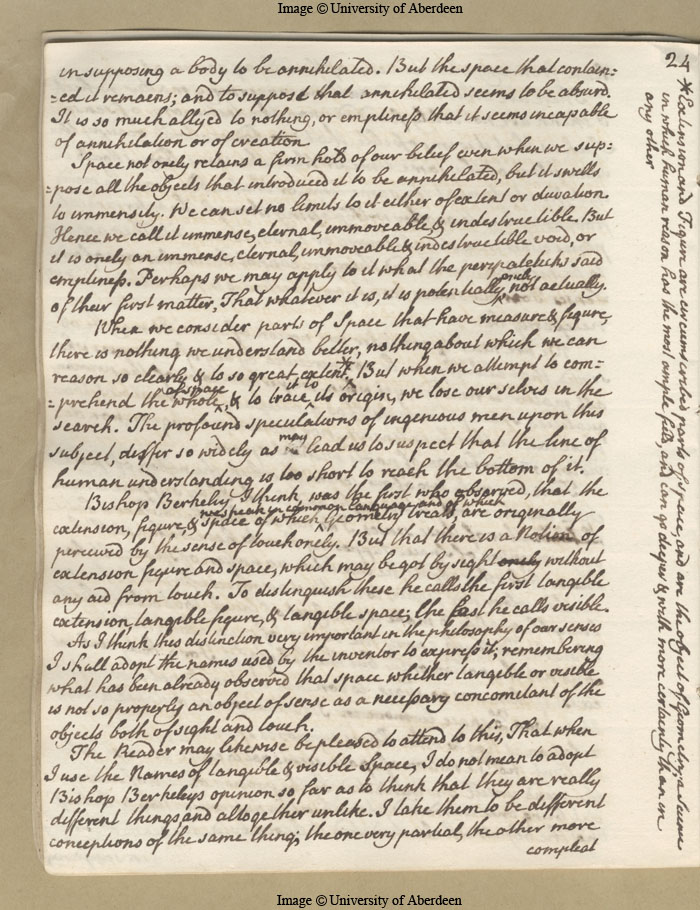 Image © University of Aberdeen
24
in supposing a body to be annihilated. But the space that contain=
=ed it remains; and to suppose that annihilated seems to be absurd.
It is so much allyed to nothing, or emptiness that it seems incapable
of annihilation or of creation
Space not onely retains a firm hold of our belief even when we sup=
=pose all the objects that introduced it to be annihilated, but it swells
to immensity. We can set no limits to it either of extent or duration.
Hence we call it immense, eternal, immoveable, & indestructible. But
it is onely an immense, eternal, immoveable & indestructible void, or
emptiness. Perhaps we may apply to it what the peripateticks said
onely
of their first matter, That whatever it is, it is potentially, not actually.
When we consider parts of Space that have measure & figure,
there is nothing we understand better, nothing about which we can
reason so clearly & to so great extent*. But when we attempt to com=
of space it to
=prehend the whole, & to trace its origin, we lose our selves in the
search. The profound speculations of ingenious men upon this
may
subject, differ so widely as lead us to suspect that the line of
human understanding is too short to reach the bottom of it.
Bishop Berkeley I think, was the first who observed, that the
we speak in common language and of which
extension, figure, & space of which Geometry treats are originally
perceived by the sense of touch onely. But that there is a Notion of
extension figure and space, which may be got by sight onely without
any aid from touch. To distinguish these he calls the first tangible
extension, tangible figure, & tangible space; the last he calls visible.
As I think this distinction very important in the philosophy of our senses
I shall adopt the names used by the inventor to express it; remembering
what has been already observed that space whether tangible or visible
is not so properly an object of sense as a necessary concomitant of the
objects both of sight and touch.
The Reader may likewise be pleased to attend to this, That when
I use the Names of tangible & visible Space, I do not mean to adopt
Bishop Berkeleys opinion so far as to think that they are really
different things and altogether unlike. I take them to be different
conceptions of the same thing; the one very partial, the other more
compleat
*Extension and Figure are circumscribed parts of space, and are the object of Geometry, a Science
in which human reason has the most ample field, and can go deeper & with more certainty than in
any other
Image © University of Aberdeen